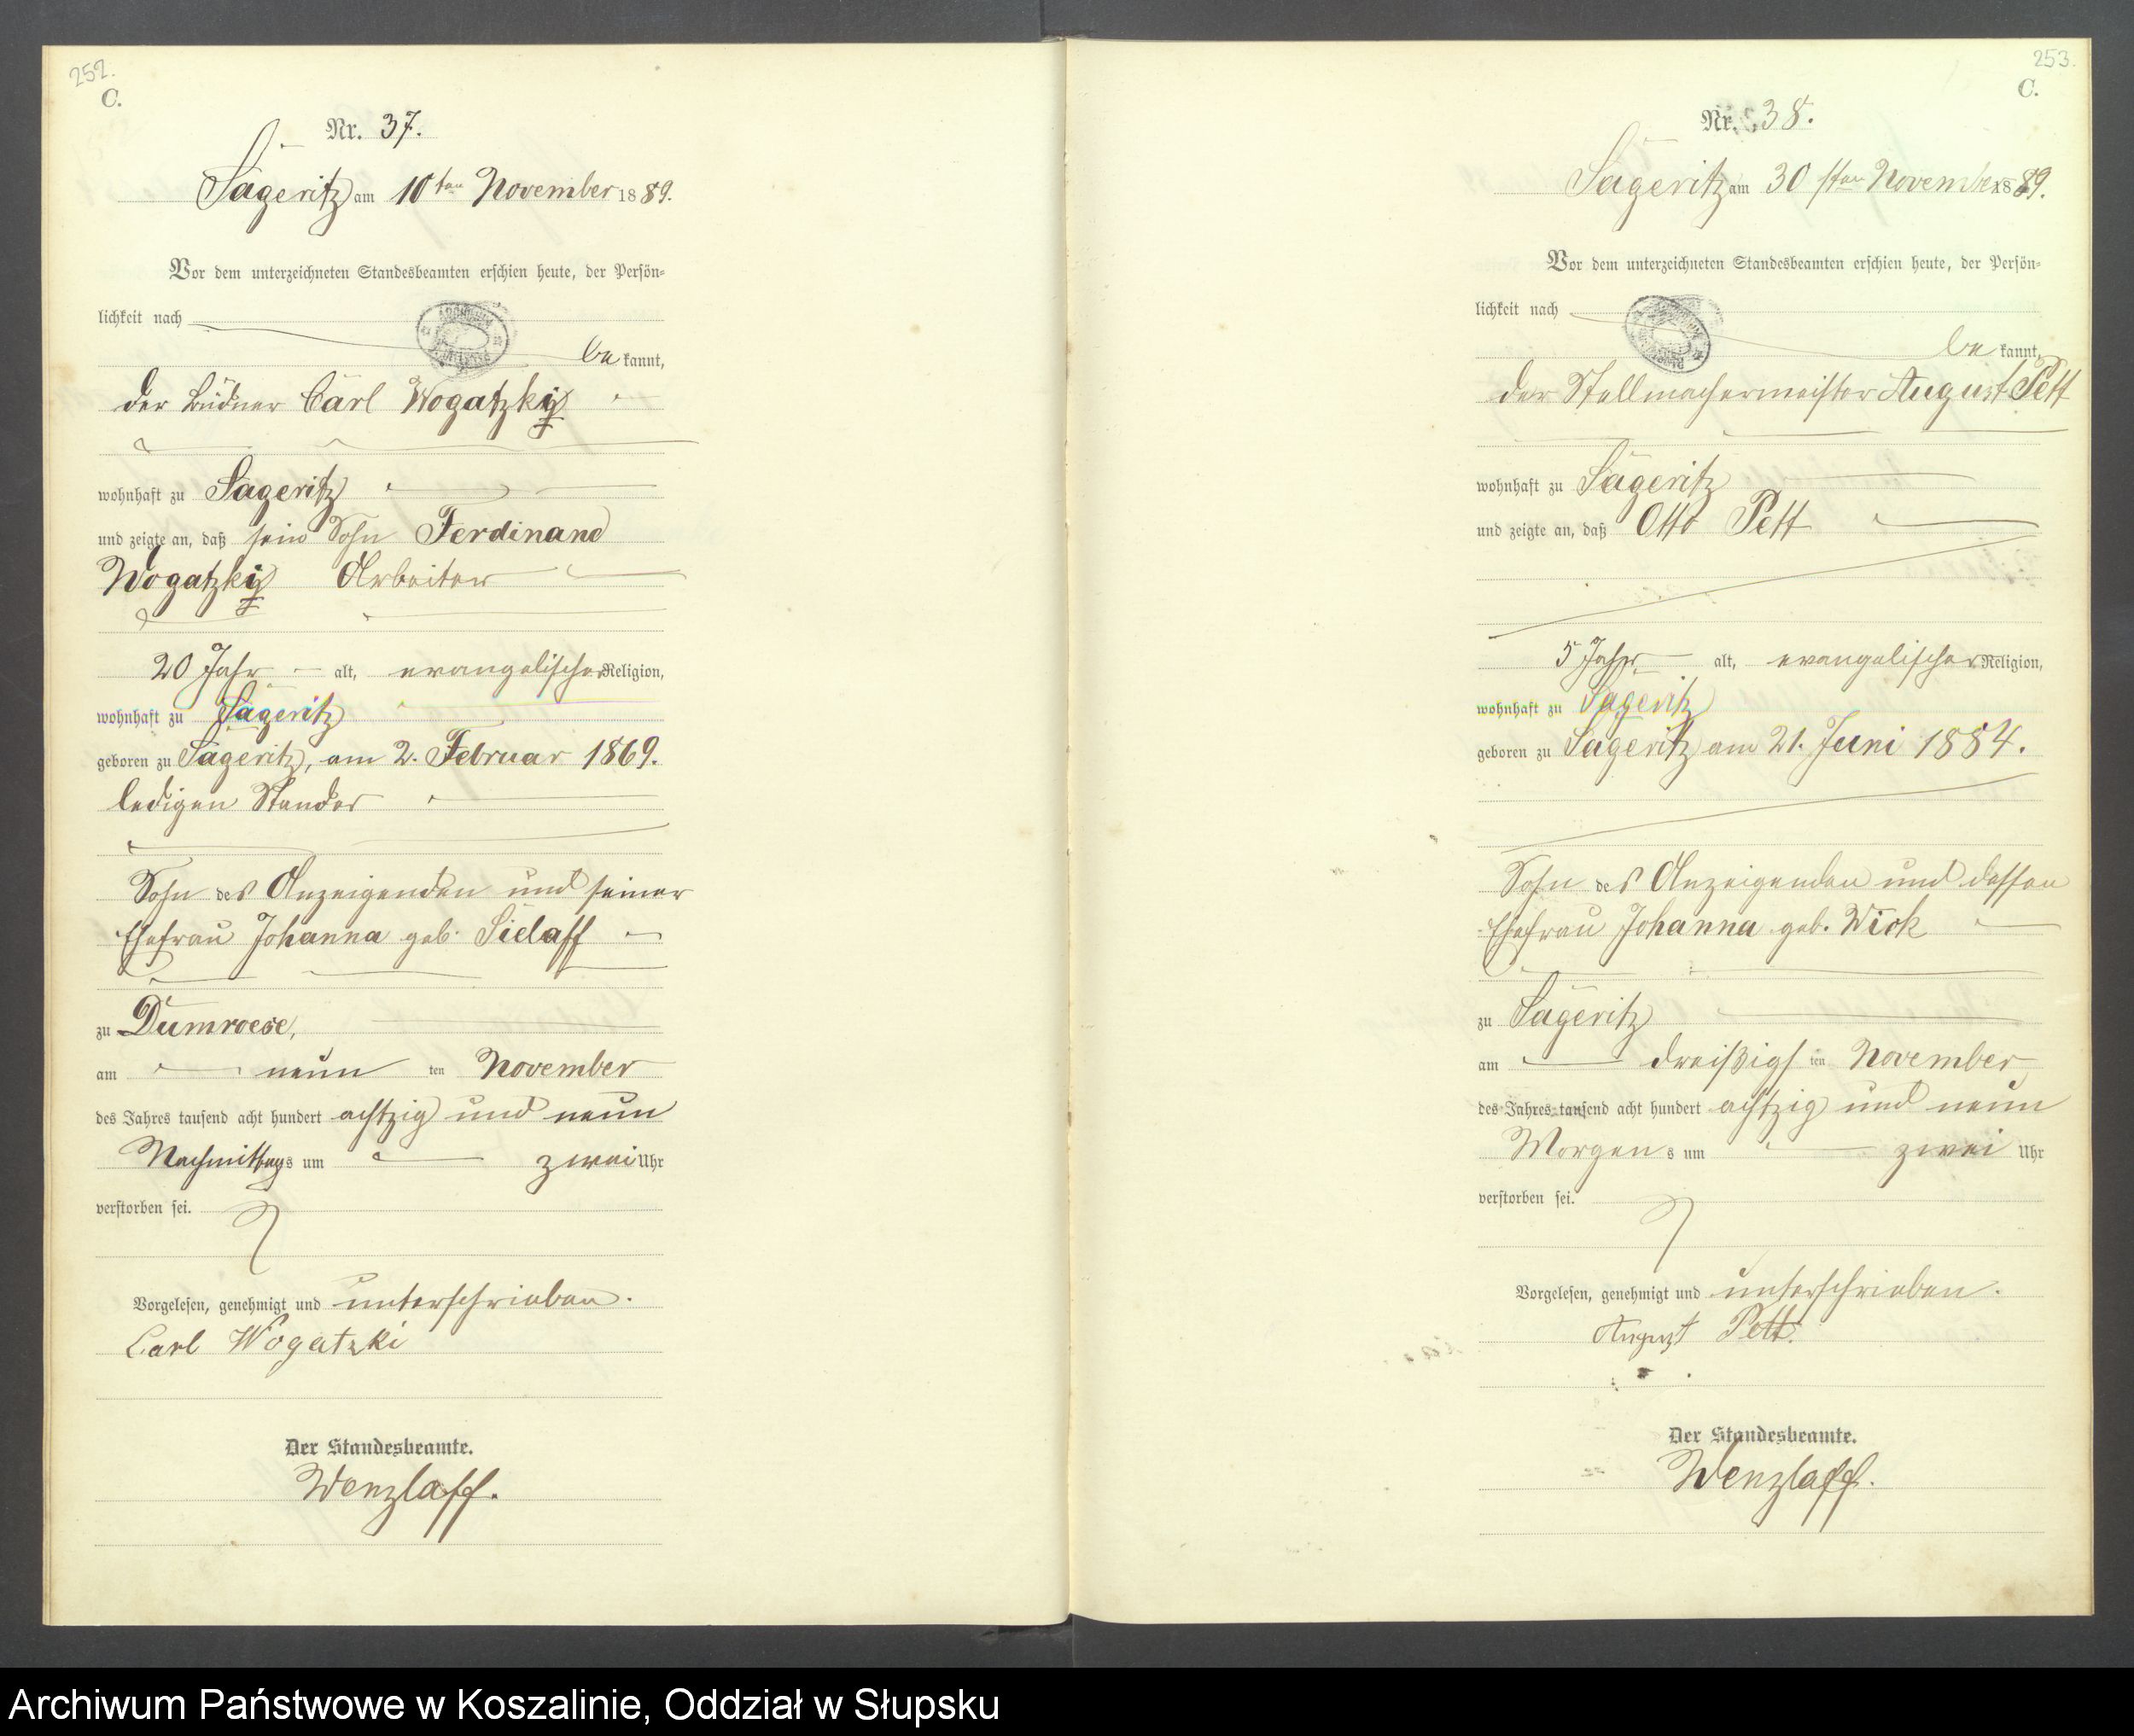 252.
C.
Nr. 37.
Sageritz am 10ten November 1889.
Vor dem unterzeichneten Standesbeamten erschien heute, der Persön-
lichkeit nach
be kannt,
der Büdner Carl Wogatzki
wohnhaft zu Sageritz
und zeigte an, daß sein Sohn Ferdinand
Wogatzki Arbeiter
20 Jahr alt, evangelischer Religion,
wohnhaft zu Sageritz
geboren zu Sageritz, am 2. Februar 1869.
ledigen Standes
Sohn des Anzeigenden und seiner
Ehefrau Johanna geb. Sielaff
zu Dumroese,
am neun ten November
des Jahres tausend acht hundert achtzig und neun
Nachmittags um zwei Uhr
verstorben sei.
Vorgelesen, genehmigt und unterschrieben.
Carl Wogatzki
Der Standesbeamte.
Wenzlaff.
253.
C.
Nr. 38.
Sageritz am 30sten November 1889.
Vor dem unterzeichneten Standesbeamten erschien heute, der Persön-
lichkeit nach
be kannt,
der Stellmachermeister August Pett
wohnhaft zu Sageritz
und zeigte an, daß Otto Pett
5 Jahr alt, evangelischer Religion,
wohnhaft zu Sageritz
geboren zu Sageritz am 21. Juni 1884.
Sohn des Anzeigenden und dessen
Ehefrau Johanna geb. Wick
zu Sageritz
am dreißigsten November
des Jahres tausend acht hundert achtzig und neun
Morgens um zwei Uhr
verstorben sei.
Vorgelesen, genehmigt und unterschrieben.
August Pett.
Der Standesbeamte.
Wenzlaff.
Archiwum Państwowe w Koszalinie, Oddział w Słupsku